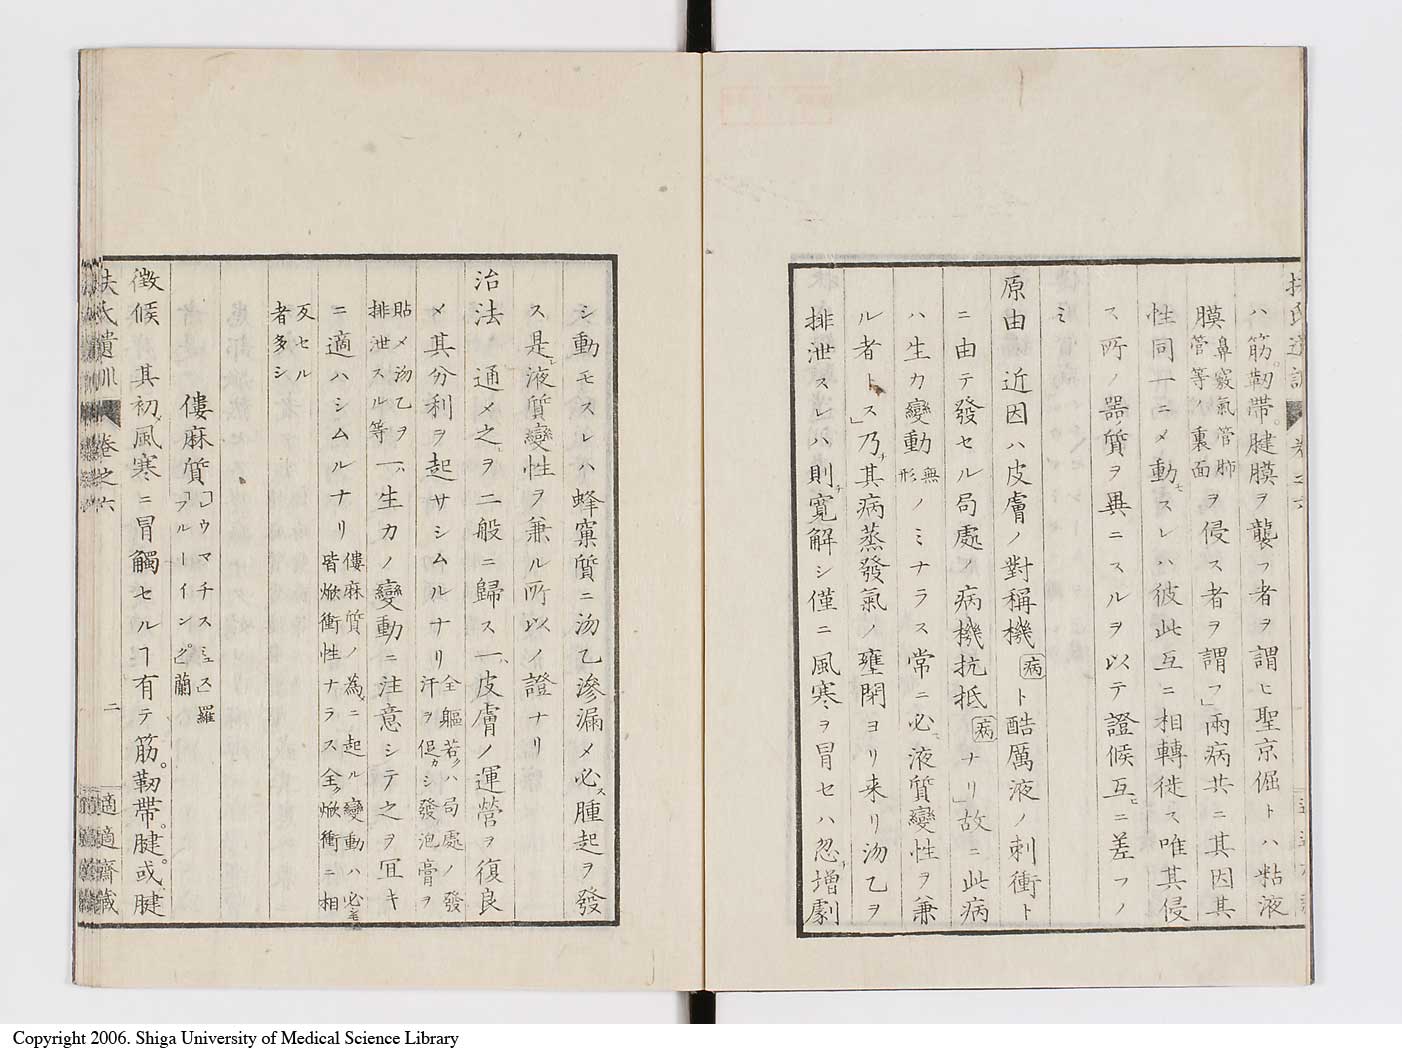 ハ筋。靱帶。腱膜ヲ襲フ者ヲ謂ヒ聖京倔トハ粘液
膜鼻竅氣管肺管等ノ裏面ヲ侵ス者ヲ謂フ」兩病共ニ其因其
性同一ニメ動モスレハ彼此互ニ相轉徙ス唯其侵
ス所ノ器質ヲ異ニスルヲ以テ證候互ヒニ差フノ
ミ
原由 近因ハ皮膚ノ對稱機病ト酷厲液ノ刺衝ト
ニ由テ發セル局處ノ病機抗抵病ナリ」故ニ此病
ハ生力變動無形ノミナラス常ニ必ス液質變性ヲ兼
ル者トス」乃チ其病蒸發氣ノ壅閉ヨリ来リ汤乙ヲ
排泄スレハ則チ寛解シ僅ニ風寒ヲ冒セハ忽チ增劇
シ動モスレハ蜂窠質ニ汤乙滲漏メ必ス腫起ヲ發
ス是レ液質變性ヲ兼ル所以ノ證ナリ
治法 通メ之ヲ二般ニ歸ス一ハ皮膚ノ運營ヲ復良
メ其分利ヲ起サシムルナリ全軀若クハ局處ノ發汗ヲ促カシ發泡膏ヲ
貼メ汤乙ヲ排泄スル等一ハ生力ノ變動ニ注意シテ之ヲ冝キ
ニ適ハシムルナリ僂麻質ノ為ニ起ル變動ハ必モ皆焮衝性ナラス全ク焮衝ニ相
反セル者多シ
僂麻質「レウマチスミュス」羅「フルーイング」蘭
徴候 其初メ風寒ニ冒觸セルヿ有テ筋。靱帶。腱。或腱
扶氏遺訓 卷之六 二 適適齋藏